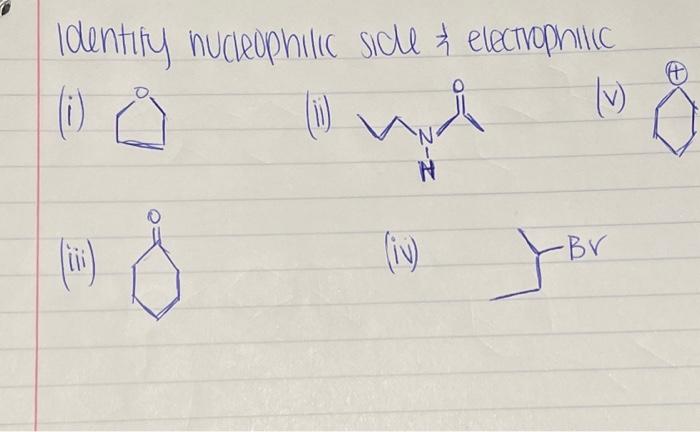 Identify nucleophilic side & electrophilic
(i) O (ii) O N H (v) +
(iii) O (iv) Br